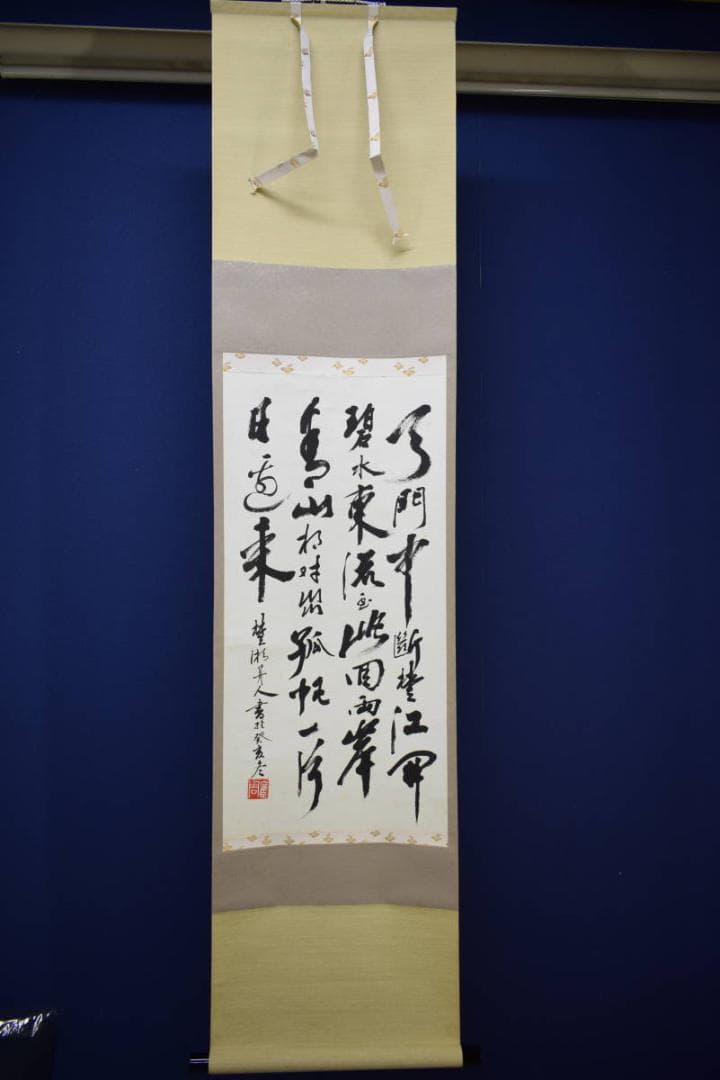 天門中斷楚江開
碧水東流至此回兩岸
青山相對出孤帆一片
日邊來
楚湘人書於癸亥冬